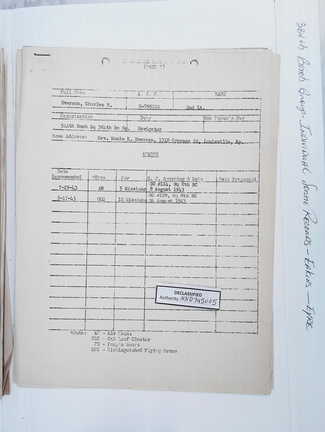 (PAGE 1)
Full Name A. S. N. RANK
Everson, Charles W. O-795222 2nd Lt.
Organization Duty One Power's Pay
544th Bomb Sq 384th Bm Gp. Navigator
Home Address: Mrs. W. Everson, 1318 Cypress St, Louisville, Ky.
AWARDS
Date Recommended *Type For G. O. Awarding & Date Date Presented
7-29-43 AM 5 Missions GO #114, Hq 8th BC 8 August 1943
8-17-43 OLC 10 Missions GO #129, Hq 8th BC August 1943
DECLASSIFIED
Authority NND 745005
*Note: AM - Air Medal
OLC - Oak Leaf Cluster
PH - Purple Heart
DFC - Distinguished Flying Cross
384th Bomb Group - Individual Sortie Records - Enders - Eyre